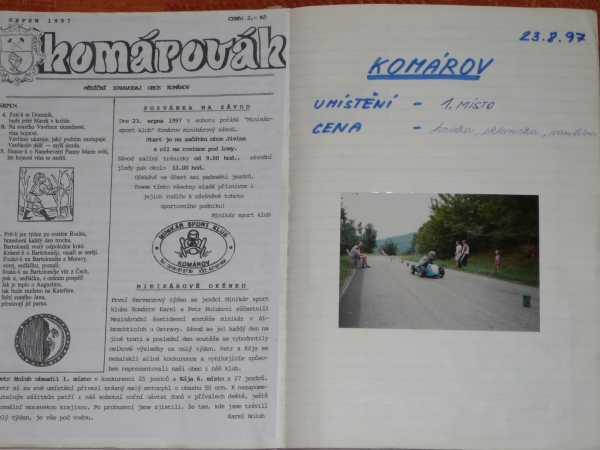 SRPEN 1997
CENA: 2,- Kč
komárovák
MĚSÍČNÍ ZPRAVODAJ OBCE KOMÁROV
SRPEN
4. Prší-li na Dominik,
bude ještě Marek v košile.
8. Na svatého Vavřince slunečnost,
vína hojnost.
Vavřinec ukazuje, jaký podzim nastupuje.
Vavřincův déšť – myší úroda.
5. Slunce-li o Nanebevzetí Panny Marie svítí,
lze hojnost vína se nadíti.
Prší-li jen týden po svatém Rochu,
bramborů každý den trochu.
Bartoloměj svatý odpoledne krátí.
Krásně-li o Bartoloměji, vinaři se smějí.
Fouká-li na Bartoloměje z Moravy,
ovsíř, sedláčku, pomalí;
fouká-li na Bartoloměje vítr z Čech,
pak si, sedláčku, s ovsem pospěš!
Jak je teplo o Augustinu,
tak bude studeno na Kateřinu.
Setni svatého Jana,
přestávají již parna.
POZVÁNKA NA ZÁVOD
Dne 23. srpna 1997 v sobotu pořádá "Minikár-
sport klub" Komárov minikárový závod.
Start je na začátku obce Životice
a cíl na rovince pod lomy.
Závod začíná tréninky od 9.00 hod., závodní
jízdy pak okolo 11.00 hod.
Očekává se účast asi padesáti jezdců.
Zveme tímto všechny mladé příznivce i
jejich rodiče k návštěvě tohoto
sportovního podniku!
Minikár sport klub
MINIKÁR SPORT KLUB
KOMÁROV
MINIKÁROVÉ OKÉNKO
První červencový týden se jezdci Minikár sport
klubu Komárov Karel a Petr Holubovi zúčastnili
Mezinárodní šestidenní soutěže minikár v Al-
brechticích u Ostravy. Závod se jel každý den na
jiné trati a poslední den soutěže se vyhodnotily
celkové výsledky za celý týden. Petr a Kája se
nezalekli silné konkurence a vynikajícím způso-
bem reprezentovali naši obec i náš klub.
Petr Holub obsadil 1. místo v konkurenci 25 jezdců a Kája 6. místo z 27 jezdců.
Petr si za své umístění přivezl krásný malý motocykl o obsahu 50 ccm. K nezapome-
nutelným zážitkům patří i náš sobotní noční návrat domů v přívalech deště, ještě
normální moravskou krajinou. Po probuzení jsme zjistili, že tam, kde jsme trávili
celý týden, je vše pod vodou.
Karel Holub
23.8.97
KOMÁROV
UMÍSTĚNÍ - 1. MÍSTO
CENA - knížka, sklenička,